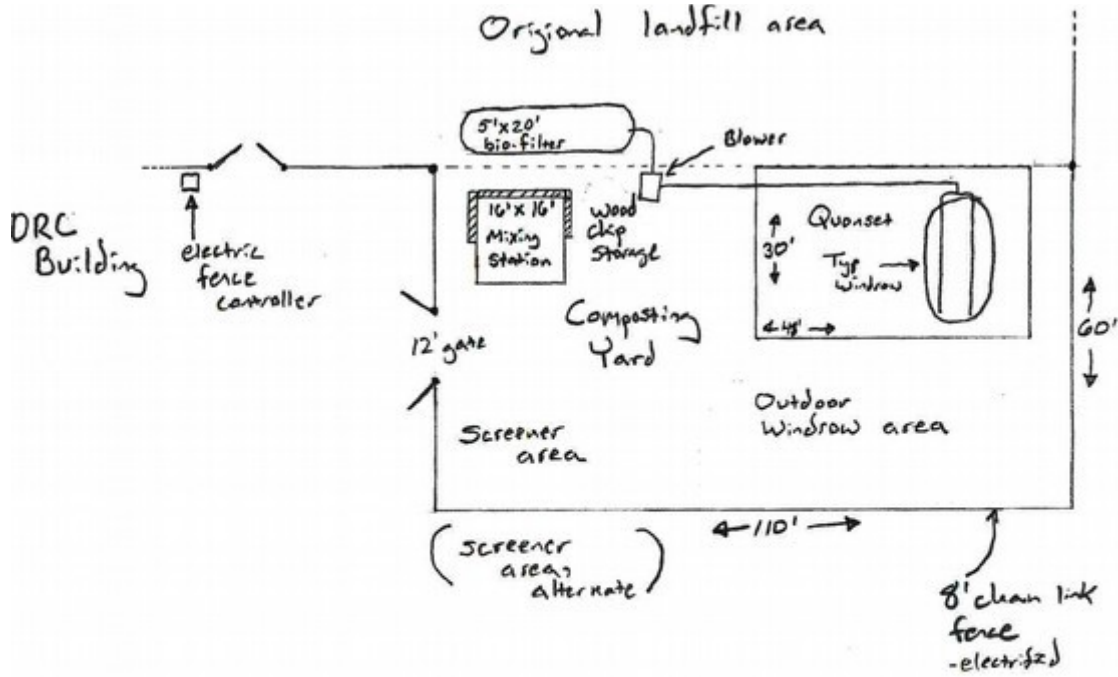 Origional landfill area
5'x20'
bio-filter
Blower
DRC
Building
electric
fence
controller
16' x 16'
Mixing
Station
wood
chip
storage
Quonset
30'
Typ
windrow
48'
60'
12' gate
Composting
Yard
Screener
area
Outdoor
Windrow area
110'
(Screener
area,
alternate)
8' chain link
fence
-electrifed